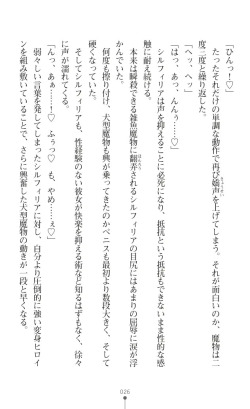 「ひんっ！♡」
　たったそれだけの単調な動作で再び嬌声を上げてしまう。それが面白いのか、魔物は二
度三度と繰り返した。
「ヘッ、ヘッ」
「はっ、あっ、んんぅ……♡」
　シルフィリアは声を抑えることに必死になり、抵抗という抵抗もできないまま性的な感
触に耐え続ける。
　本来は瞬殺できる雑魚魔物に翻弄されるシルフィリアの目尻にはあまりの屈辱に涙が浮
かんでいた。
　何度も擦り付け、大型魔物も興が乗ってきたのかペニスも最初より数段大きく、そして
硬くなっていた。
　そしてシルフィリアも、性経験のない彼女が快楽を抑える術など知るはずもなく、徐々
に声が濡れてくる。
「んっ、あぁ……！♡　ふぅっ♡　も、やめ……ぇ♡」
　弱々しい言葉を発してしまったシルフィリアに対し、自分より圧倒的に強い変身ヒロイ
ンを組み敷いていることで、さらに興奮した大型魔物の動きが一段と早くなる。
026